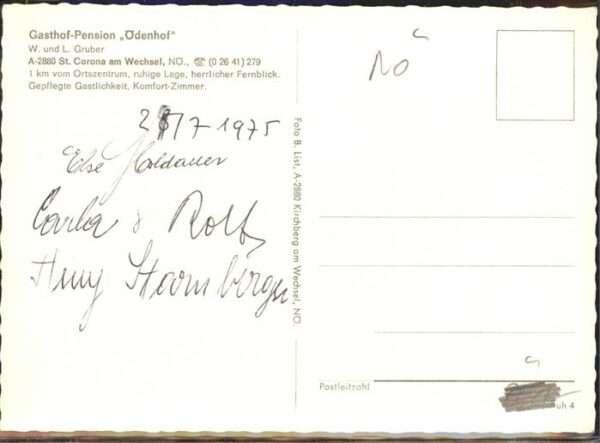 Gasthof-Pension „Ödenhof"
W. und L. Gruber
A-2880 St. Corona am Wechsel, NÖ., ☎ (0 26 41) 279
1 km vom Ortszentrum, ruhige Lage, herrlicher Fernblick.
Gepflegte Gastlichkeit, Komfort-Zimmer.
7 1975
Else
Carla & Rolf
Foto B. List, A-2880 Kirchberg am Wechsel, NÖ.
NÖ
Postleitzahl
uh 4